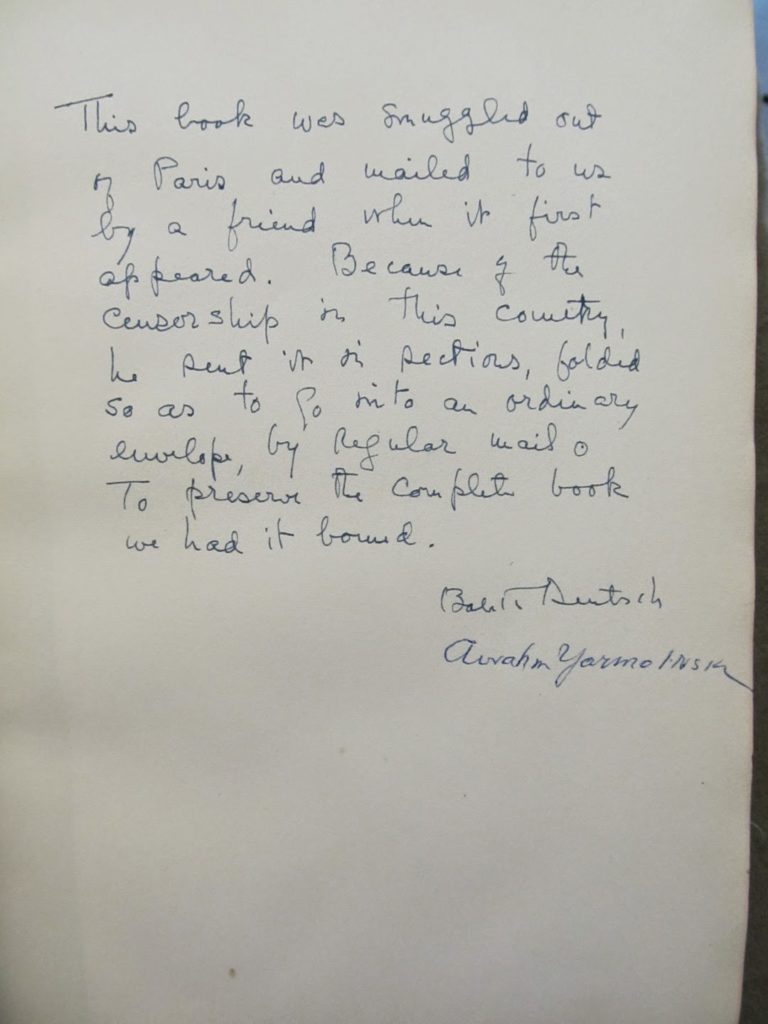 This book was smuggled out
of Paris and mailed to us
by a friend when it first
appeared. Because of the
censorship in this country,
he sent it in sections, folded
so as to go into an ordinary
envelope, by regular mail.
To preserve the complete book
we had it bound.
Babette Deutsch
Avrahm Yarmolinsky